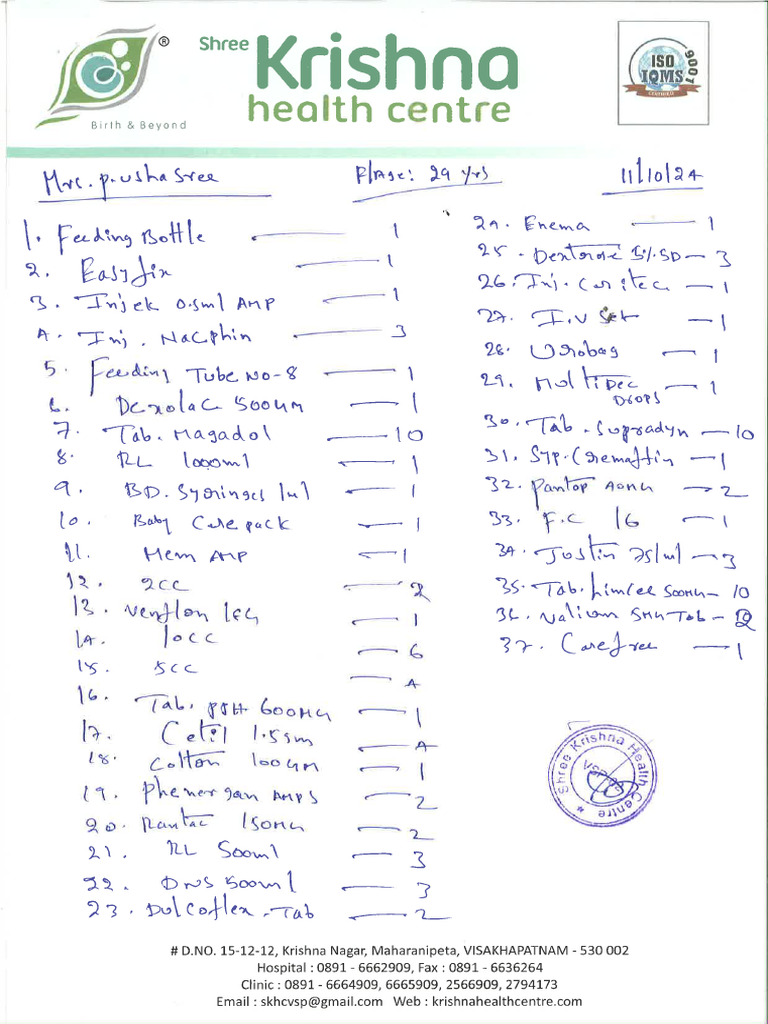 Shree
Krishna
health centre
Birth & Beyond
®
ISO
IQMS
9001
CERTIFIED
Mrs. P. Usha Sree F/Age: 29 yrs 11/10/24
1. Feeding Bottle — 1
2. Easyfix — 1
3. Injek 0.5ml AMP — 1
4. Inj. Nacphin — 3
5. Feeding Tube No-8 — 1
6. Dexolac 500GM — 1
7. Tab. Magadol — 10
8. RL 1000ml — 1
9. BD. Syringes 1ml — 1
10. Baby Care pack — 1
11. Mem AMP — 1
12. 2CC — 2
13. Venflon 18G — 1
14. 10CC — 6
15. 5CC — 4
16. Tab. PPH 600MG — 1
17. Cetil 1.5gm — 4
18. Cotton 100GM — 1
19. Phenergan AMPS — 2
20. Rantac 150MG — 2
21. RL 500ml — 3
22. DNS 500ml — 3
23. Dulcoflex. Tab — 2
24. Enema — 1
25. Dextrose 5%. SD — 3
26. Inj. Caritec — 1
27. I.V Set — 1
28. Urobag — 1
29. Multidec — 1
DROPS
30. Tab. Supradyn — 10
31. Syp. Cremaffin — 1
32. Pantop 40MG — 2
33. F.C 16 — 1
34. Justin 75/ml — 3
35. Tab. Limcee 500MG — 10
36. Valium 5MG Tab — 2
37. Carefree — 1
Shree Krishna Health Centre
VSP
# D.NO. 15-12-12, Krishna Nagar, Maharanipeta, VISAKHAPATNAM - 530 002
Hospital : 0891 - 6662909, Fax : 0891 - 6636264
Clinic : 0891 - 6664909, 6665909, 2566909, 2794173
Email : skhcvsp@gmail.com Web : krishnahealthcentre.com